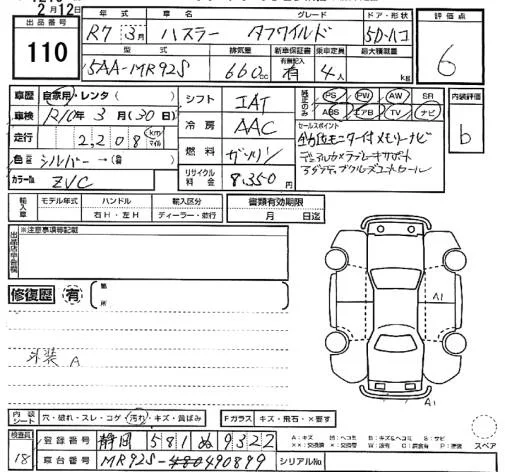 2月12日
出品番号 110
年式 R7 3月 車名 ハスラー タフワイルド グレード ドア・形状 5D・ハコ 評価点 6
型式 5AA-MR92S 排気量 660cc 新車保証書 有無記入 有 乗車定員 4人 最大積載量 kg
車歴 自家用・レンタ ( )
車検 R10年3月(30日)
走行 2,208 km マイル
色 シルバー→(替 )
カラーNo ZVC
シフト IAT
冷房 AAC
燃料 ガソリン
リサイクル料金 8,350円
純正のみ PS PW AW SR
ABS エアB TV ナビ
内装評価 b
セールスポイント
全方位モニター付メモリーナビ
デュアルカメラブレーキサポート
アダプティブクルーズコントロール
輸入車 モデル年式 ハンドル 右H・左H 輸入区分 ディーラー・並行
書類有効期限 月 日迄
出品店申告欄 ※注意事項等記載
修復歴 有 箇所
A1
A1
外装 A
内装シート 穴・破れ・スレ・コゲ・汚れ・キズ・黄ばみ
Fガラス キズ・飛石・×要す
検査員 18
登録番号 静岡 581 ぬ 9322
車台番号 MR92S-490899
シリアルNo
スペア